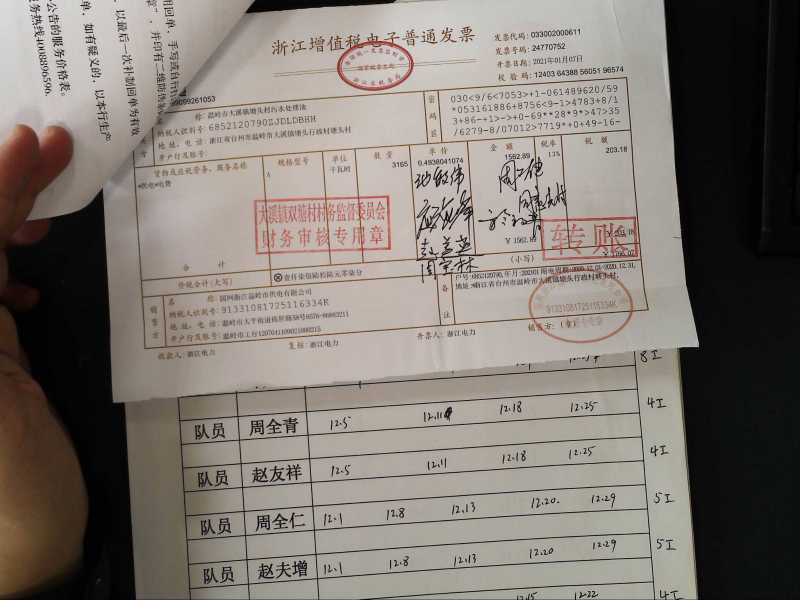 用回单，手写或自行
章"，并印有二维防伪
以最后一次补制回单为有效
单，如有疑义的，以本行生产
公告的服务价格表。
服务热线4008896596.
浙江增值税电子普通发票
发票代码: 033002000611
发票号码: 24770752
开票日期: 2021年01月07日
校 验 码: 12403 64388 56051 96574
99099261053
称: 温岭市大溪镇塘头村污水处理池
纳税人识别号: 6852120790ZJDLDBHH
地 址、电 话: 浙江省台州市温岭市大溪镇塘头行政村塘头村
开户行及账号:
密 码 区
030<9/6<7053>+1-061489620/59
*053161886+8756<9-1>4783+8/1
3+86-+1>->+0-69**28*9>47>35
/6279-8/07012>7719*+0+49-16-
货物或应税劳务、服务名称 规格型号 单位 数 量 单 价 金 额 税率 税 额
*供电*电费 千瓦时 3165 0.4938041074 1562.89 13% 203.18
大溪镇双塘村村务监督委员会
财务审核专用章
转账
合 计 ￥1562.89
价税合计（大写） ⊗壹仟柒佰陆拾陆元零柒分 （小写）
销 售 方
名 称: 国网浙江温岭市供电有限公司
纳税人识别号: 91331081725116334K
地 址、电 话: 温岭市太平街道
开户行及账号: 温岭市工行
备 注
地址:浙江省台州市温岭市大溪镇塘头行政村塘头村.
91331081725116334K
收款人: 浙江电力 复核: 浙江电力 开票人: 浙江电力 销售方: （章）
8工
队员 周全青 12.5 12.11 12.18 12.25 4工
队员 赵友祥 12.5 12.11 12.18 12.25 4工
队员 周全仁 12.1 12.8 12.13 12.20 12.29 5工
队员 赵夫增 12.1 12.8 12.13 12.20 12.29 5工
12.15 12.22 4工